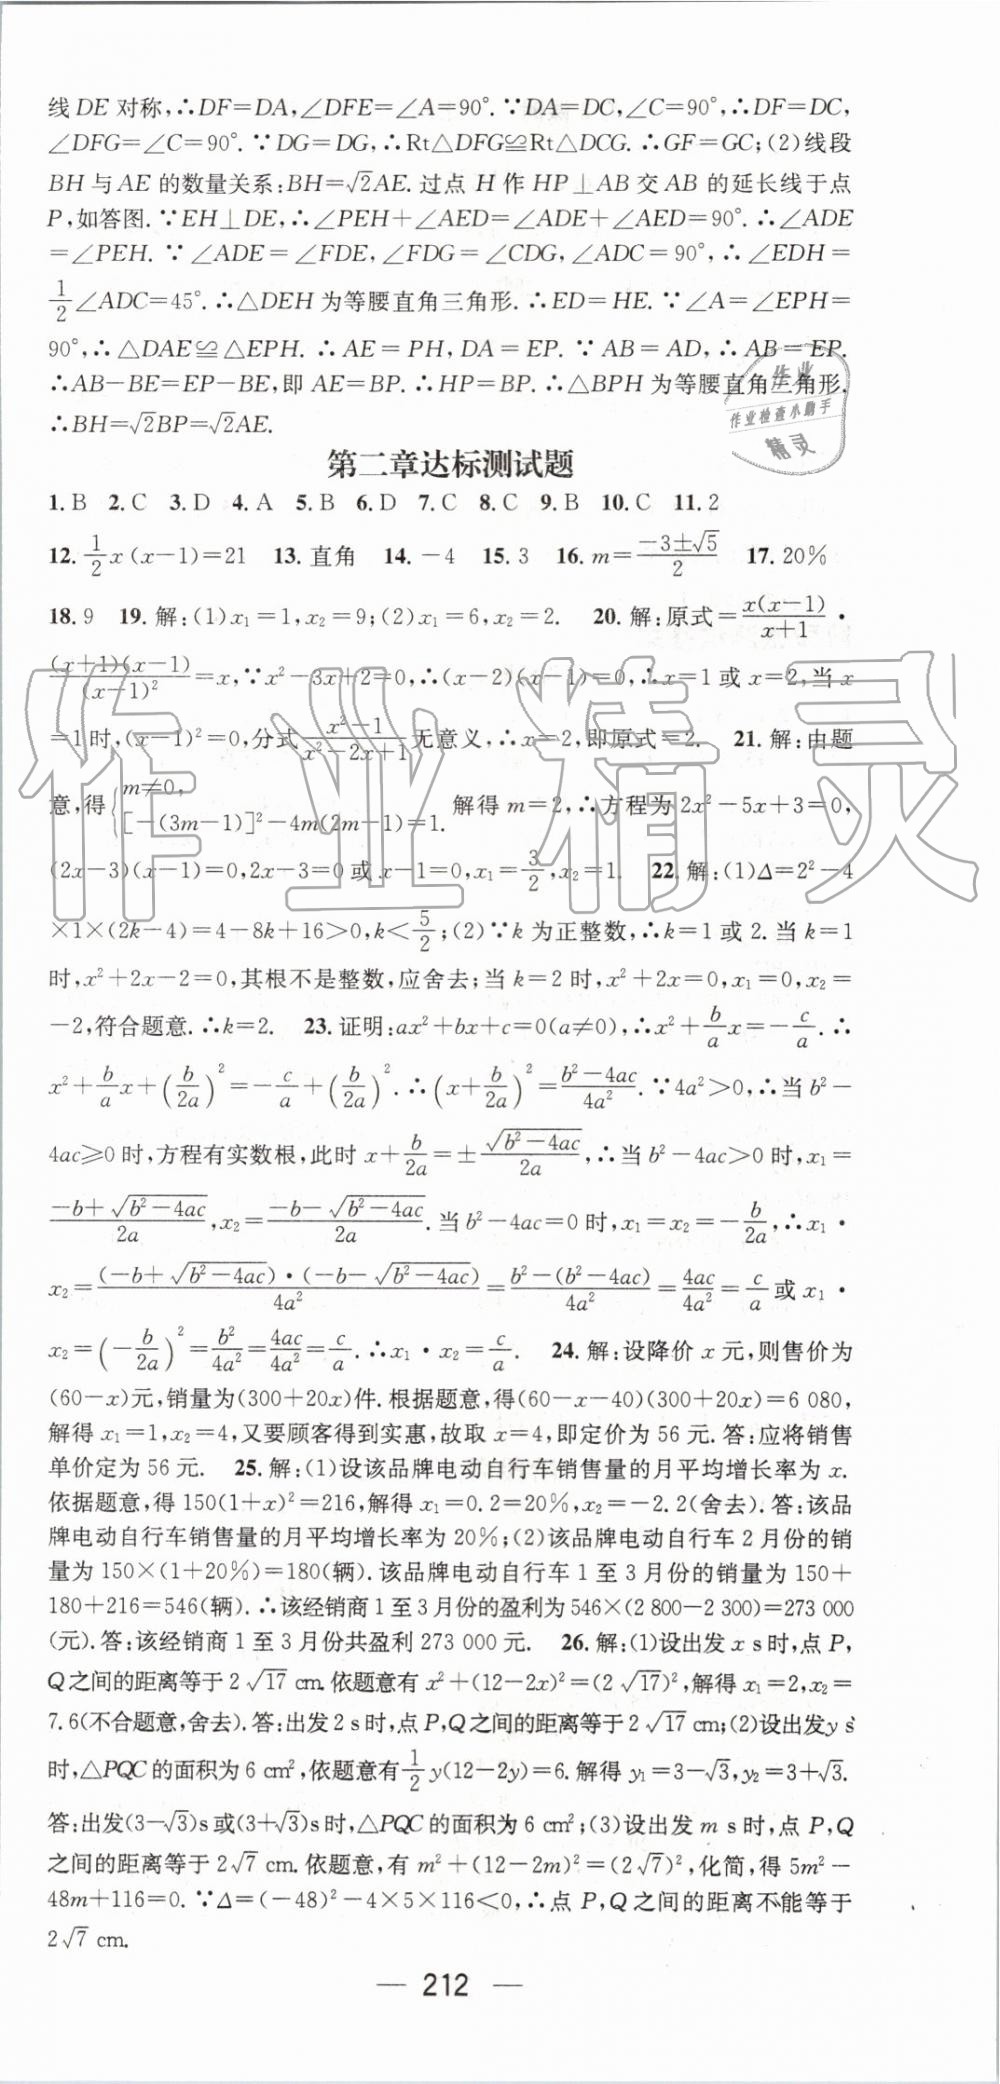 线DE对称,∴DF=DA,∠DFE=∠A=90°.∵DA=DC,∠C=90°,∴DF=DC,
∠DFG=∠C=90°.∵DG=DG,∴Rt△DFG≌Rt△DCG.∴GF=GC;(2)线段
BH与AE的数量关系:BH=√2AE.过点H作HP⊥AB交AB的延长线于点
P,如答图.∵EH⊥DE,∴∠PEH+∠AED=∠ADE+∠AED=90°.∴∠ADE
=∠PEH.∵∠ADE=∠FDE,∠FDG=∠CDG,∠ADC=90°,∴∠EDH=
1/2∠ADC=45°.∴△DEH为等腰直角三角形.∴ED=HE.∵∠A=∠EPH=
90°,∴△DAE≌△EPH.∴AE=PH,DA=EP.∵AB=AD,∴AB=EP.
∴AB-BE=EP-BE,即AE=BP.∴HP=BP.∴△BPH为等腰直角三角形.
∴BH=√2BP=√2AE.
作业
作业检查小助手
精灵
第二章达标测试题
1.B 2.C 3.D 4.A 5.B 6.D 7.C 8.C 9.B 10.C 11.2
12.1/2x(x-1)=21 13.直角 14.-4 15.3 16.m=(-3±√5)/2 17.20%
18.9 19.解:(1)x₁=1,x₂=9;(2)x₁=6,x₂=2. 20.解:原式=x(x-1)/(x+1)·
(x+1)(x-1)/(x-1)²=x,∵x²-3x+2=0,∴(x-2)(x-1)=0,∴x=1或x=2,当x
=1时,(x-1)²=0,分式(x²-1)/(x²-2x+1)无意义,∴x=2,即原式=2. 21.解:由题
意,得{m≠0, [-(3m-1)]²-4m(2m-1)=1. 解得m=2,∴方程为2x²-5x+3=0,
(2x-3)(x-1)=0,2x-3=0或x-1=0,x₁=3/2,x₂=1. 22.解:(1)Δ=2²-4
×1×(2k-4)=4-8k+16>0,k<5/2;(2)∵k为正整数,∴k=1或2.当k=1
时,x²+2x-2=0,其根不是整数,应舍去;当k=2时,x²+2x=0,x₁=0,x₂=
-2,符合题意.∴k=2. 23.证明:ax²+bx+c=0(a≠0),∴x²+b/a x=-c/a.∴
x²+b/a x+(b/2a)²=-c/a+(b/2a)².∴(x+b/2a)²=(b²-4ac)/4a².∵4a²>0,∴当b²-
4ac≥0时,方程有实数根,此时x+b/2a=±√(b²-4ac)/2a,∴当b²-4ac>0时,x₁=
(-b+√(b²-4ac))/2a,x₂=(-b-√(b²-4ac))/2a.当b²-4ac=0时,x₁=x₂=-b/2a,∴x₁·
x₂=(-b+√(b²-4ac))·(-b-√(b²-4ac))/4a²=(b²-(b²-4ac))/4a²=4ac/4a²=c/a或x₁·
x₂=(-b/2a)²=b²/4a²=4ac/4a²=c/a.∴x₁·x₂=c/a. 24.解:设降价x元,则售价为
(60-x)元,销量为(300+20x)件.根据题意,得(60-x-40)(300+20x)=6 080,
解得x₁=1,x₂=4,又要顾客得到实惠,故取x=4,即定价为56元.答:应将销售
单价定为56元. 25.解:(1)设该品牌电动自行车销售量的月平均增长率为x.
依据题意,得150(1+x)²=216,解得x₁=0.2=20%,x₂=-2.2(舍去).答:该品
牌电动自行车销售量的月平均增长率为20%;(2)该品牌电动自行车2月份的销
量为150×(1+20%)=180(辆).该品牌电动自行车1至3月份的销量为150+
180+216=546(辆).∴该经销商1至3月份的盈利为546×(2 800-2 300)=273 000
(元).答:该经销商1至3月份共盈利273 000元. 26.解:(1)设出发x s时,点P,
Q之间的距离等于2√17 cm.依题意有x²+(12-2x)²=(2√17)²,解得x₁=2,x₂=
7.6(不合题意,舍去).答:出发2 s时,点P,Q之间的距离等于2√17 cm;(2)设出发y s
时,△PQC的面积为6 cm²,依题意有1/2y(12-2y)=6.解得y₁=3-√3,y₂=3+√3.
答:出发(3-√3)s或(3+√3)s时,△PQC的面积为6 cm²;(3)设出发m s时,点P,Q
之间的距离等于2√7 cm.依题意,有m²+(12-2m)²=(2√7)²,化简,得5m²-
48m+116=0.∵Δ=(-48)²-4×5×116<0,∴点P,Q之间的距离不能等于
2√7 cm.
作业精灵
— 212 —